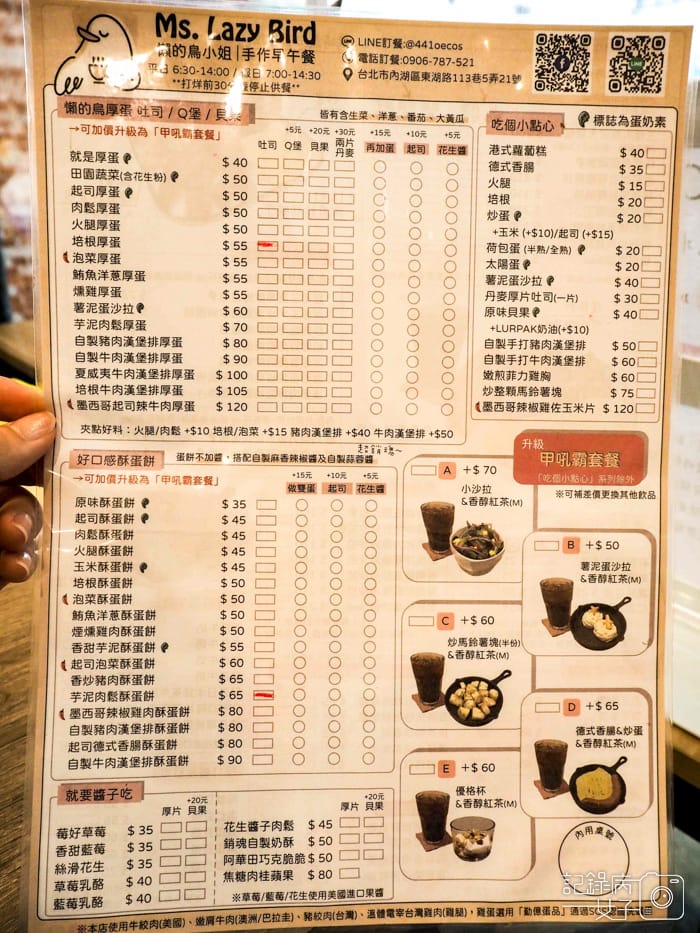 Ms. Lazy Bird
懶的鳥小姐|手作早午餐
平日 6:30-14:00 / 假日 7:00-14:30
**打烊前30分鐘停止供餐**
LINE訂餐:@441oecos
電話訂餐:0906-787-521
台北市內湖區東湖路113巷5弄21號
LINE
懶的鳥厚蛋 吐司 / Q堡 / 貝果
皆有含生菜、洋蔥、番茄、大黃瓜
→可加價升級為「甲吼霸套餐」
+5元 +20元 +30元 +15元 +10元 +5元
吐司 Q堡 貝果 兩片丹麥 再加蛋 起司 花生醬
就是厚蛋 $ 40
田園蔬菜(含花生粉) $ 50
起司厚蛋 $ 50
肉鬆厚蛋 $ 50
火腿厚蛋 $ 50
培根厚蛋 $ 55
泡菜厚蛋 $ 55
鮪魚洋蔥厚蛋 $ 55
燻雞厚蛋 $ 55
薯泥蛋沙拉 $ 60
芋泥肉鬆厚蛋 $ 70
自製豬肉漢堡排厚蛋 $ 80
自製牛肉漢堡排厚蛋 $ 90
夏威夷牛肉漢堡排厚蛋 $ 100
培根牛肉漢堡排厚蛋 $ 105
墨西哥起司辣牛肉厚蛋 $ 120
夾點好料：火腿/肉鬆 +$10 培根/泡菜 +$15 豬肉漢堡排 +$40 牛肉漢堡排 +$50
吃個小點心
標誌為蛋奶素
港式蘿蔔糕 $ 40
德式香腸 $ 35
火腿 $ 15
培根 $ 20
炒蛋 $ 20
+玉米 (+$10)/起司 (+$15)
荷包蛋 (半熟/全熟) $ 20
太陽蛋 $ 20
薯泥蛋沙拉 $ 40
丹麥厚片吐司(一片) $ 30
原味貝果 $ 40
+LURPAK奶油(+$10)
自製手打豬肉漢堡排 $ 50
自製手打牛肉漢堡排 $ 60
嫩煎菲力雞胸 $ 60
炒整顆馬鈴薯塊 $ 75
墨西哥辣椒雞佐玉米片 $ 120
好口感酥蛋餅
蛋餅不加醬，搭配自製麻香辣椒醬及自製蒜蓉醬
→可加價升級為「甲吼霸套餐」
+15元 +10元 +5元
做雙蛋 起司 花生醬
原味酥蛋餅 $ 35
起司酥蛋餅 $ 45
肉鬆酥蛋餅 $ 45
火腿酥蛋餅 $ 45
玉米酥蛋餅 $ 45
培根酥蛋餅 $ 50
泡菜酥蛋餅 $ 50
鮪魚洋蔥酥蛋餅 $ 50
煙燻雞肉酥蛋餅 $ 50
香甜芋泥酥蛋餅 $ 55
起司泡菜酥蛋餅 $ 60
香炒豬肉酥蛋餅 $ 65
芋泥肉鬆酥蛋餅 $ 65
墨西哥辣椒雞肉酥蛋餅 $ 80
自製豬肉漢堡排酥蛋餅 $ 80
起司德式香腸酥蛋餅 $ 80
自製牛肉漢堡排酥蛋餅 $ 90
升級
甲吼霸套餐
「吃個小點心」系列除外
※可補差價更換其他飲品
A + $ 70
小沙拉
&香醇紅茶(M)
B + $ 50
薯泥蛋沙拉
&香醇紅茶(M)
C + $ 60
炒馬鈴薯塊(半份)
&香醇紅茶(M)
D + $ 65
德式香腸&炒蛋
&香醇紅茶(M)
E + $ 60
優格杯
&香醇紅茶(M)
內用桌號
就要醬子吃
+20元
厚片 貝果
莓好草莓 $ 35
香甜藍莓 $ 35
絲滑花生 $ 35
草莓乳酪 $ 40
藍莓乳酪 $ 40
+20元
厚片 貝果
花生醬子肉鬆 $ 45
銷魂自製奶酥 $ 50
阿華田巧克脆脆 $ 50
焦糖肉桂蘋果 $ 80
※草莓/藍莓/花生使用美國進口果醬
※本店使用牛絞肉(美國)、嫩肩牛肉(澳洲/巴拉圭)、豬絞肉(台灣)、溫體電宰台灣雞肉(雞腿)，雞蛋選用「勤億蛋品」通過S
記錄病女子